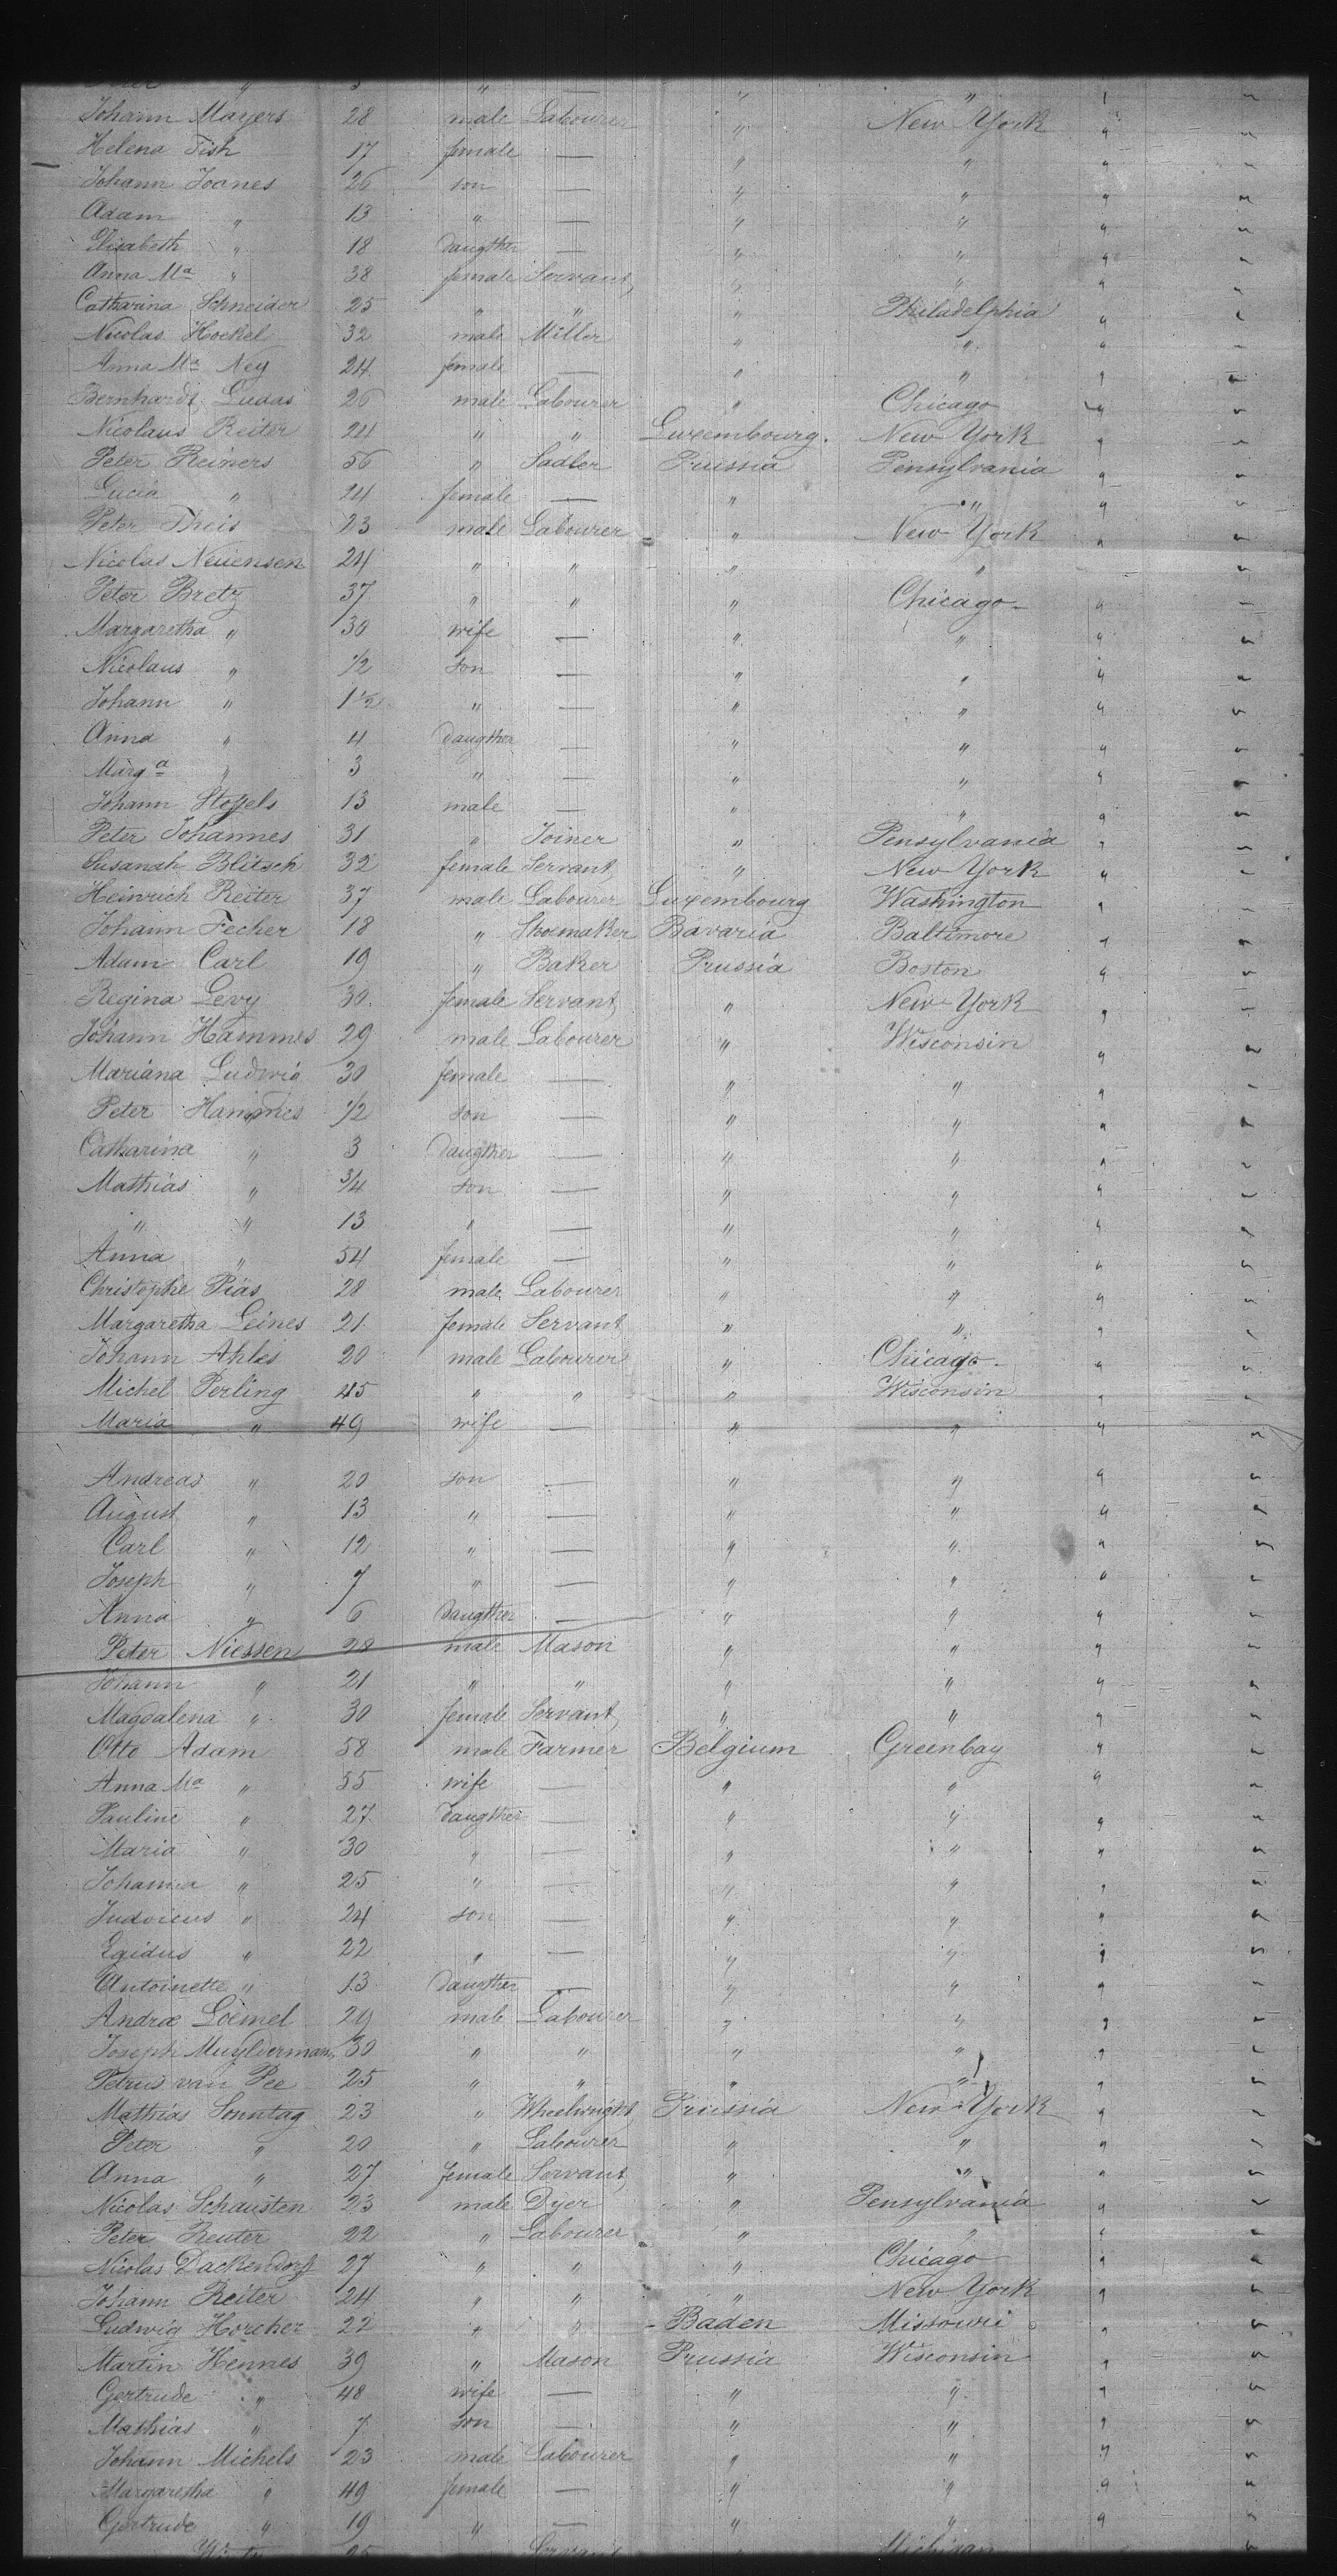 Johann Mayers 28 male Labourer " New York " "
Helena Fish 17 female — " " " "
Johann Joanes 26 son — " " " "
Adam " 13 " — " " " "
Elisabeth " 18 daugther — " " " "
Anna Ma " 38 female Servant " " " "
Catharina Schneider 25 " " " Philadelphia " "
Nicolas Hockel 32 male Miller " " " "
Anna Ma Ney 24 female — " " " "
Bernhardt Ludas 26 male Labourer " Chicago " "
Nicolaus Reiter 24 " " Luxembourg. New York " "
Peter Reiners 56 " Sadler Prussia Pensylvania " "
Lucia " 24 female — " " " "
Peter Theis 23 male Labourer " New York " "
Nicolas Neuensen 24 " " " " "
Peter Bretz 37 " " " Chicago " "
Margaretha " 30 wife — " " " "
Nicolaus " 1/2 son — " " " "
Johann " 1 1/2 " — " " " "
Anna " 4 daugther — " " " "
Marga " 3 " — " " " "
Johann Stoffels 13 male — " " " "
Peter Johannes 31 " Joiner " Pensylvania " "
Susanah Blitsch 32 female Servant " New York " "
Heinrich Reiter 37 male Labourer Luxembourg Washington " "
Johann Fecher 18 " Shoemaker Bavaria Baltimore " "
Adam Carl 19 " Baker Prussia Boston " "
Regina Levy 30 female Servant " New York " "
Johann Hammes 29 male Labourer " Wisconsin " "
Mariana Ludwig 30 female — " " " "
Peter Hammes 1/2 son — " " " "
Catharina " 3 daugther — " " " "
Mathias " 3/4 son — " " " "
" " 13 " — " " " "
Anna " 54 female — " " " "
Christophe Pias 28 male Labourer " " " "
Margaretha Leines 21 female Servant " " " "
Johann Ahles 20 male Labourer " Chicago " "
Michel Perling 45 " " " Wisconsin " "
Maria " 49 wife — " " " "
Andreas " 20 son — " " " "
August " 13 " — " " " "
Carl " 12 " — " " " "
Joseph " 7 " — " " " "
Anna " 6 daugther — " " " "
Peter Niessen 28 male Mason " " " "
Johann " 21 " " " " " "
Magdalena " 30 female Servant " " " "
Otto Adam 58 male Farmer Belgium Greenbay " "
Anna Ma " 55 wife — " " " "
Pauline " 27 daugther — " " " "
Maria " 30 " — " " " "
Johanna " 25 " — " " " "
Judvicus " 24 son — " " " "
Egidus " 22 " — " " " "
Antoinette " 13 daugther — " " " "
Andrae Loemel 29 male Labourer " " " "
Joseph Muylderman 30 " " " " " "
Petrus van Pee 25 " " " " " "
Mathias Sonntag 23 " Wheelwright Prussia New York " "
Peter " 20 " Labourer " " " "
Anna " 27 female Servant " " " "
Nicolas Schausten 23 male Dyer " Pensylvania " "
Peter Reuter 22 " Labourer " " " "
Nicolas Dackendorff 27 " " " Chicago " "
Johann Reiter 24 " " " New York " "
Ludwig Horcher 22 " " Baden Missouri " "
Martin Hennes 39 " Mason Prussia Wisconsin " "
Gertrude " 48 wife — " " " "
Mathias " 7 son — " " " "
Johann Michels 23 male Labourer " " " "
Margaretha " 49 female — " " " "
Gertrude " 19 " — " " " "
25 Servant Michigan